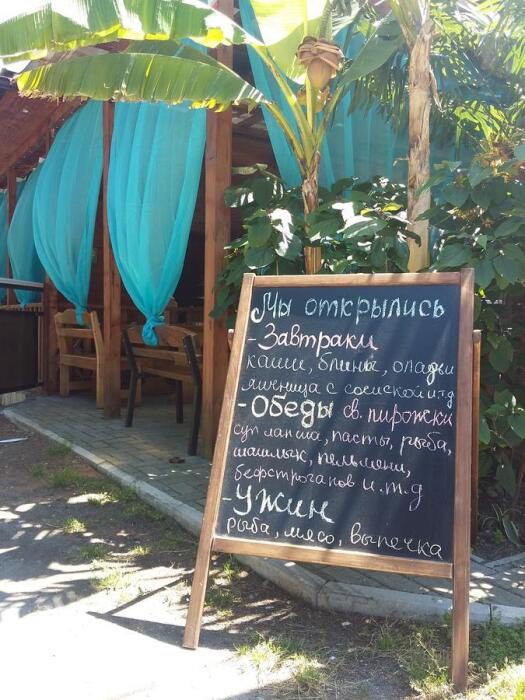 Мы открылись
-Завтраки
каши, блины, оладьи
яичница с сосиской и т.д
-Обеды св. пирожки
суп лапша, пасты, рыба,
шашлык, пельмени,
бефстроганов и.т.д
-Ужин
рыба, мясо, выпечка